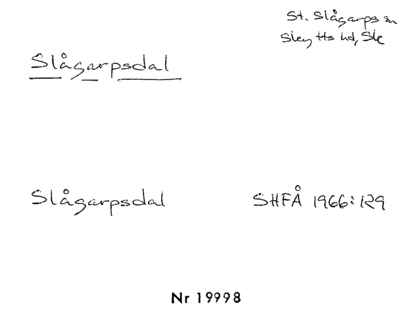 St. Slågarps sn
Skytts hd, Sk
Slågarpsdal
Slågarpsdal SHFÅ 1966:129
Nr 19998